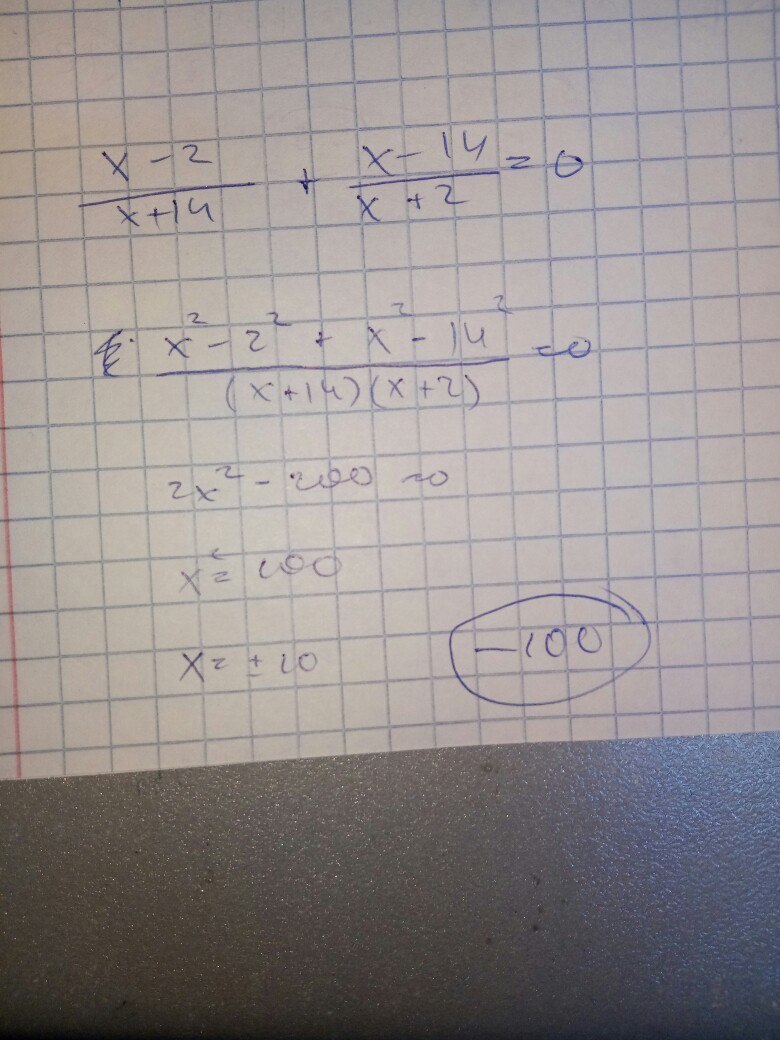 x-2/x+14 + x-14/x+2 = 0
x²-2² + x²-14²/(x+14)(x+2) =0
2x²-200=0
x²=100
x=±10
-100